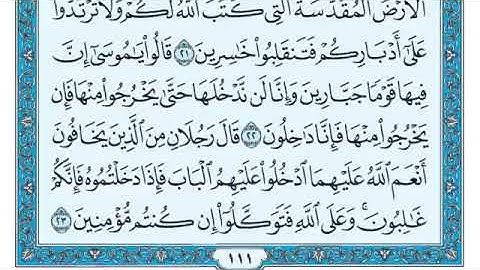 ٱلْأَرْضَ ٱلْمُقَدَّسَةَ ٱلَّتِى كَتَبَ ٱللَّهُ لَكُمْ وَلَا تَرْتَدُّوا۟
عَلَىٰٓ أَدْبَارِكُمْ فَتَنقَلِبُوا۟ خَـٰسِرِينَ ٢١ قَالُوا۟ يَـٰمُوسَىٰٓ إِنَّ
فِيهَا قَوْمًا جَبَّارِينَ وَإِنَّا لَن نَّدْخُلَهَا حَتَّىٰ يَخْرُجُوا۟ مِنْهَا فَإِن
يَخْرُجُوا۟ مِنْهَا فَإِنَّا دَٰخِلُونَ ٢٢ قَالَ رَجُلَانِ مِنَ ٱلَّذِينَ يَخَافُونَ
أَنْعَمَ ٱللَّهُ عَلَيْهِمَا ٱدْخُلُوا۟ عَلَيْهِمُ ٱلْبَابَ فَإِذَا دَخَلْتُمُوهُ فَإِنَّكُمْ
غَـٰلِبُونَ ۚ وَعَلَى ٱللَّهِ فَتَوَكَّلُوٓا۟ إِن كُنتُم مُّؤْمِنِينَ ٢٣
١١١